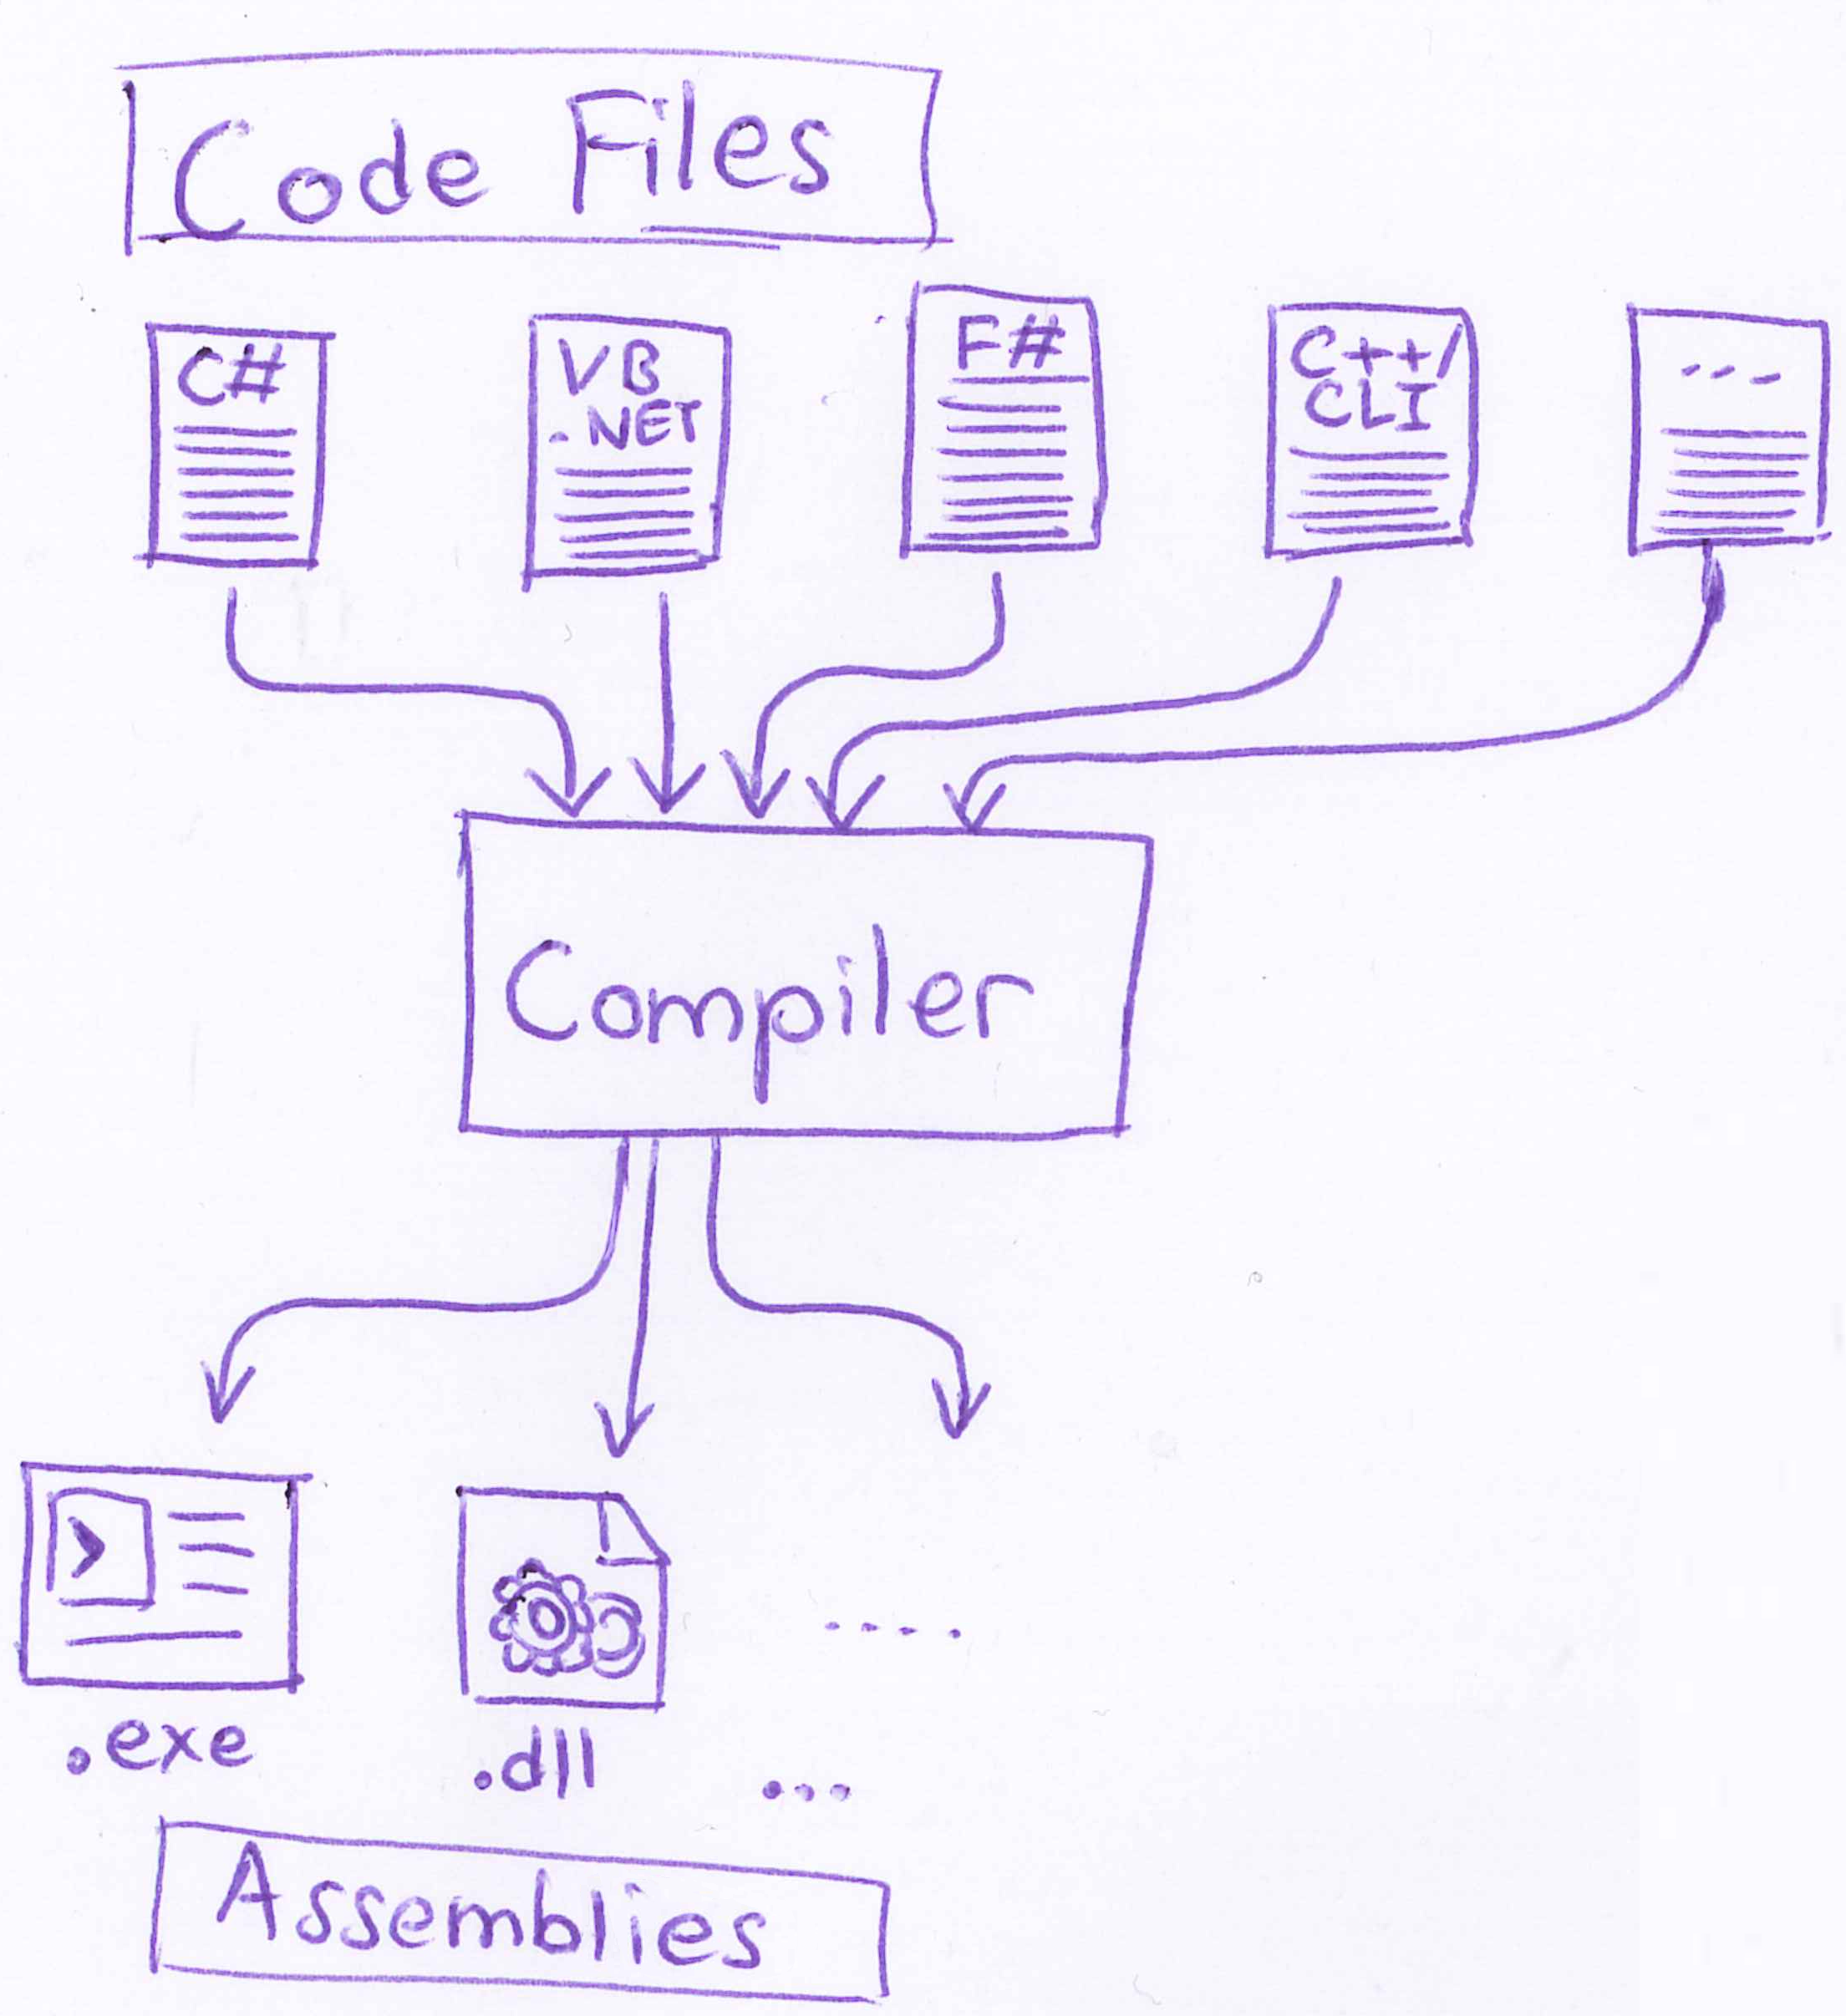 Code Files
C#
VB
.NET
F#
C++/
CLI
...
Compiler
....
.exe
.dll
...
Assemblies